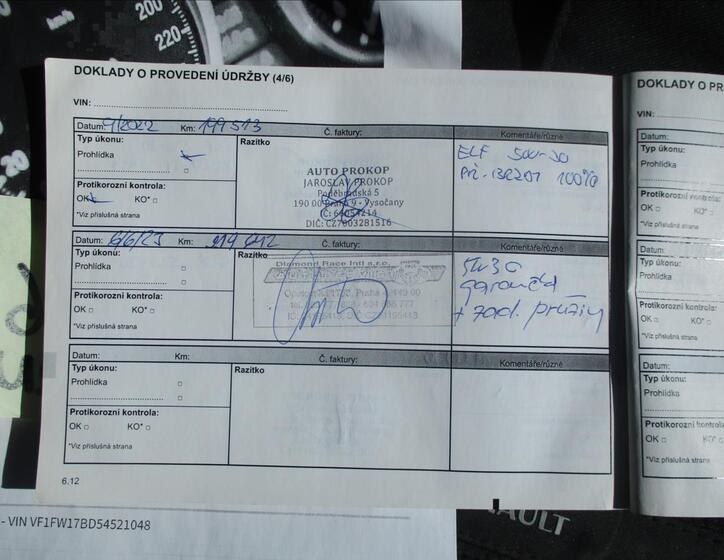 200
220
DOKLADY O PROVEDENÍ ÚDRŽBY (4/6)
VIN:
Datum: 9/2022 Km: 199 513 Č. faktury: Komentáře/různé
Typ úkonu: Razítko
Prohlídka
AUTO PROKOP
JAROSLAV PROKOP
Poděbradská 5
190 00 Praha 9 - Vysočany
DIČ: CZ7003281516
ELF
100%
Protikorozní kontrola:
OK KO*
*Viz příslušná strana
Datum: 6/6/23 Km: 219 612 Č. faktury: Komentáře/různé
Typ úkonu: Razítko
Prohlídka
Diamond Race Intl s.r.o.
5W30
+ zad. pružiny
Protikorozní kontrola:
OK KO*
*Viz příslušná strana
Datum: Km: Č. faktury: Komentáře/různé
Typ úkonu: Razítko
Prohlídka
Protikorozní kontrola:
OK KO*
*Viz příslušná strana
6.12
DOKLADY O PR
VIN:
Datum:
Typ úkonu:
Prohlídka
Protikorozní kontrola:
OK KO*
*Viz příslušná strana
Datum:
Typ úkonu:
Prohlídka
Protikorozní kontrola:
OK KO*
*Viz příslušná strana
Datum:
Typ úkonu:
Prohlídka
Protikorozní kontrola:
OK KO*
*Viz příslušná strana
- VIN VF1FW17BD54521048
AULT